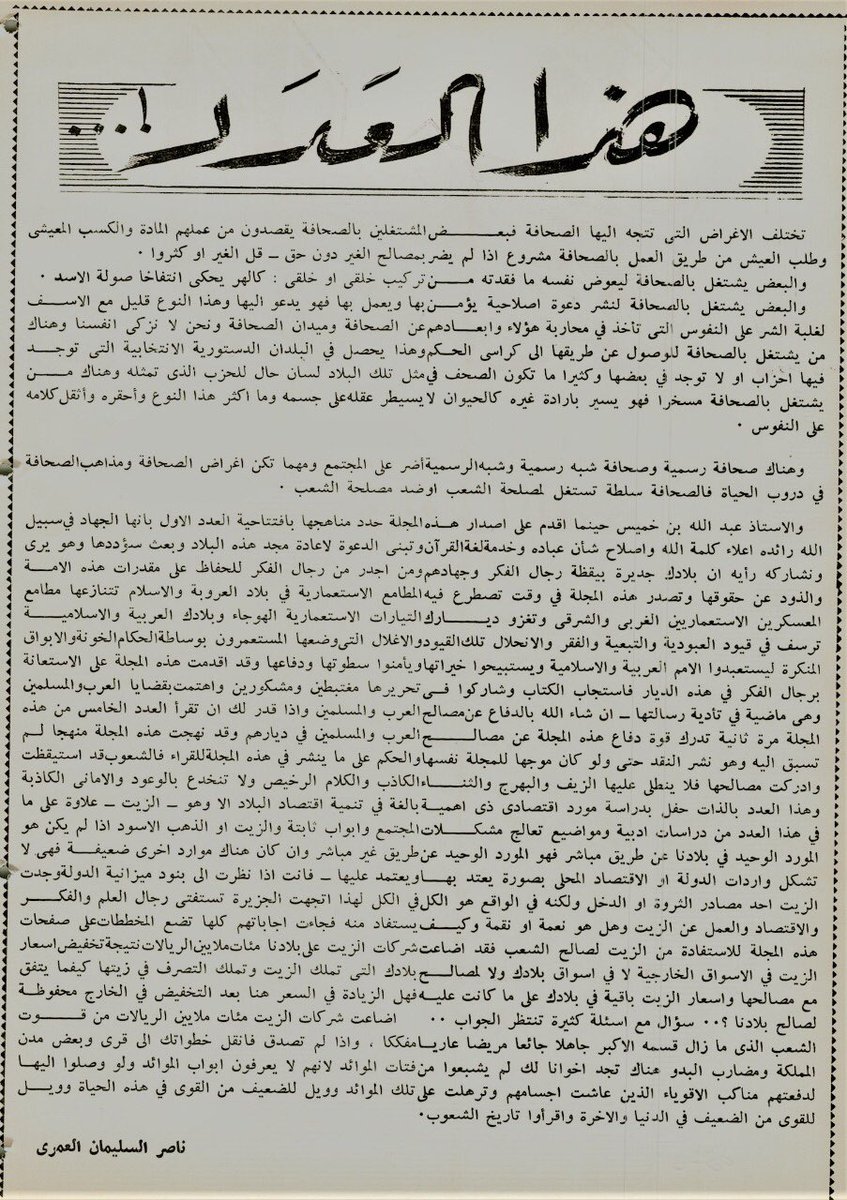 هذا العدد !...
تختلف الاغراض التى تتجه اليها الصحافة فبعض المشتغلين بالصحافة يقصدون من عملهم المادة والكسب المعيشى
وطلب العيش من طريق العمل بالصحافة مشروع اذا لم يضر بمصالح الغير دون حق ــ قل الغير او كثروا .
والبعض يشتغل بالصحافة ليعوض نفسه ما فقدته من تركيب خلقى او خلقى : كالهر يحكى انتفاخا صولة الاسد .
والبعض يشتغل بالصحافة لنشر دعوة اصلاحية يؤمن بها ويعمل بها فهو يدعو اليها وهذا النوع قليل مع الاسف
لغلبة الشر على النفوس التى تأخذ في محاربة هؤلاء وابعادهم عن الصحافة وميدان الصحافة ونحن لا نزكى انفسنا وهناك
من يشتغل بالصحافة للوصول عن طريقها الى كراسى الحكم وهذا يحصل في البلدان الدستورية الانتخابية التى توجد
فيها احزاب او لا توجد في بعضها وكثيرا ما تكون الصحف في مثل تلك البلاد لسان حال للحزب الذى تمثله وهناك من
يشتغل بالصحافة مسخرا فهو يسير بارادة غيره كالحيوان لا يسيطر عقله على جسمه وما اكثر هذا النوع وأحقره وأثقل كلامه
على النفوس .
وهناك صحافة رسمية وصحافة شبه رسمية وشبه الرسمية أضر على المجتمع ومهما تكن اغراض الصحافة ومذاهب الصحافة
في دروب الحياة فالصحافة سلطة تستغل لمصلحة الشعب او ضد مصلحة الشعب .
والاستاذ عبد الله بن خميس حينما اقدم على اصدار هذه المجلة حدد مناهجها بافتتاحية العدد الاول بانها الجهاد في سبيل
الله رائده اعلاء كلمة الله واصلاح شأن عباده وخدمة لغة القرآن وتبنى الدعوة لاعادة مجد هذه البلاد وبعث سؤددها وهو يرى
ونشاركه رأيه ان بلادك جديرة بيقظة رجال الفكر وجهادهم ومن اجدر من رجال الفكر للحفاظ على مقدرات هذه الامة
والذود عن حقوقها وتصدر هذه المجلة في وقت تصطرع فيه المطامع الاستعمارية في بلاد العروبة والاسلام تتنازعها مطامع
المعسكرين الاستعماريين الغربى والشرقى وتغزو ديارك التيارات الاستعمارية الهوجاء وبلادك العربية والاسلامية
ترسف في قيود العبودية والتبعية والفقر والانحلال تلك القيود والاغلال التى وضعها المستعمرون بوساطة الحكام الخونة والابواق
المنكرة ليستعبدوا الامم العربية والاسلامية ويستبيحوا خيراتها ويأمنوا سطوتها ودفاعها وقد اقدمت هذه المجلة على الاستعانة
برجال الفكر في هذه الديار فاستجاب الكتاب وشاركوا في تحريرها مغتبطين ومشكورين واهتمت بقضايا العرب والمسلمين
وهى ماضية في تأدية رسالتها ــ ان شاء الله بالدفاع عن مصالح العرب والمسلمين واذا قدر لك ان تقرأ العدد الخامس من هذه
المجلة مرة ثانية تدرك قوة دفاع هذه المجلة عن مصالح العرب والمسلمين في ديارهم وقد نهجت هذه المجلة منهجا لم
تسبق اليه وهو نشر النقد حتى ولو كان موجها للمجلة نفسها والحكم على ما ينشر في هذه المجلة للقراء فالشعوب قد استيقظت
وادركت مصالحها فلا ينطلى عليها الزيف والبهرج والثناء الكاذب والكلام الرخيص ولا تنخدع بالوعود والامانى الكاذبة
وهذا العدد بالذات حفل بدراسة مورد اقتصادى ذى اهمية بالغة في تنمية اقتصاد البلاد الا وهو ــ الزيت ــ علاوة على ما
في هذا العدد من دراسات ادبية ومواضيع تعالج مشكلات المجتمع وابواب ثابتة والزيت او الذهب الاسود اذا لم يكن هو
المورد الوحيد في بلادنا عن طريق مباشر فهو المورد الوحيد عن طريق غير مباشر وان كان هناك موارد اخرى ضعيفة فهى لا
تشكل واردات الدولة او الاقتصاد المحلى بصورة يعتد بها ويعتمد عليها ــ فانت اذا نظرت الى بنود ميزانية الدولة وجدت
الزيت احد مصادر الثروة او الدخل ولكنه في الواقع هو الكل في الكل لهذا اتجهت الجزيرة تستفتى رجال العلم والفكر
والاقتصاد والعمل عن الزيت وهل هو نعمة او نقمة وكيف يستفاد منه فجاءت اجاباتهم كلها تضع المخططات على صفحات
هذه المجلة للاستفادة من الزيت لصالح الشعب فقد اضاعت شركات الزيت على بلادنا مئات ملايين الريالات نتيجة تخفيض اسعار
الزيت في الاسواق الخارجية لا في اسواق بلادك ولا لمصالح بلادك التى تملك الزيت وتملك التصرف في زيتها كيفما يتفق
مع مصالحها واسعار الزيت باقية في بلادك على ما كانت عليه فهل الزيادة في السعر هنا بعد التخفيض في الخارج محفوظة
لصالح بلادنا ؟.. سؤال مع اسئلة كثيرة تنتظر الجواب .. اضاعت شركات الزيت مئات ملايين الريالات من قوت
الشعب الذى ما زال قسمه الاكبر جاهلا جائعا مريضا عاريا مفككا ، واذا لم تصدق فانقل خطواتك الى قرى وبعض مدن
المملكة ومضارب البدو هناك تجد اخوانا لك لم يشبعوا من فتات الموائد لانهم لا يعرفون ابواب الموائد ولو وصلوا اليها
لدفعتهم مناكب الاقوياء الذين عاشت اجسامهم وترهلت على تلك الموائد وويل للضعيف من القوى في هذه الحياة وويل
للقوى من الضعيف في الدنيا والاخرة واقرأوا تاريخ الشعوب.
ناصر السليمان العمرى